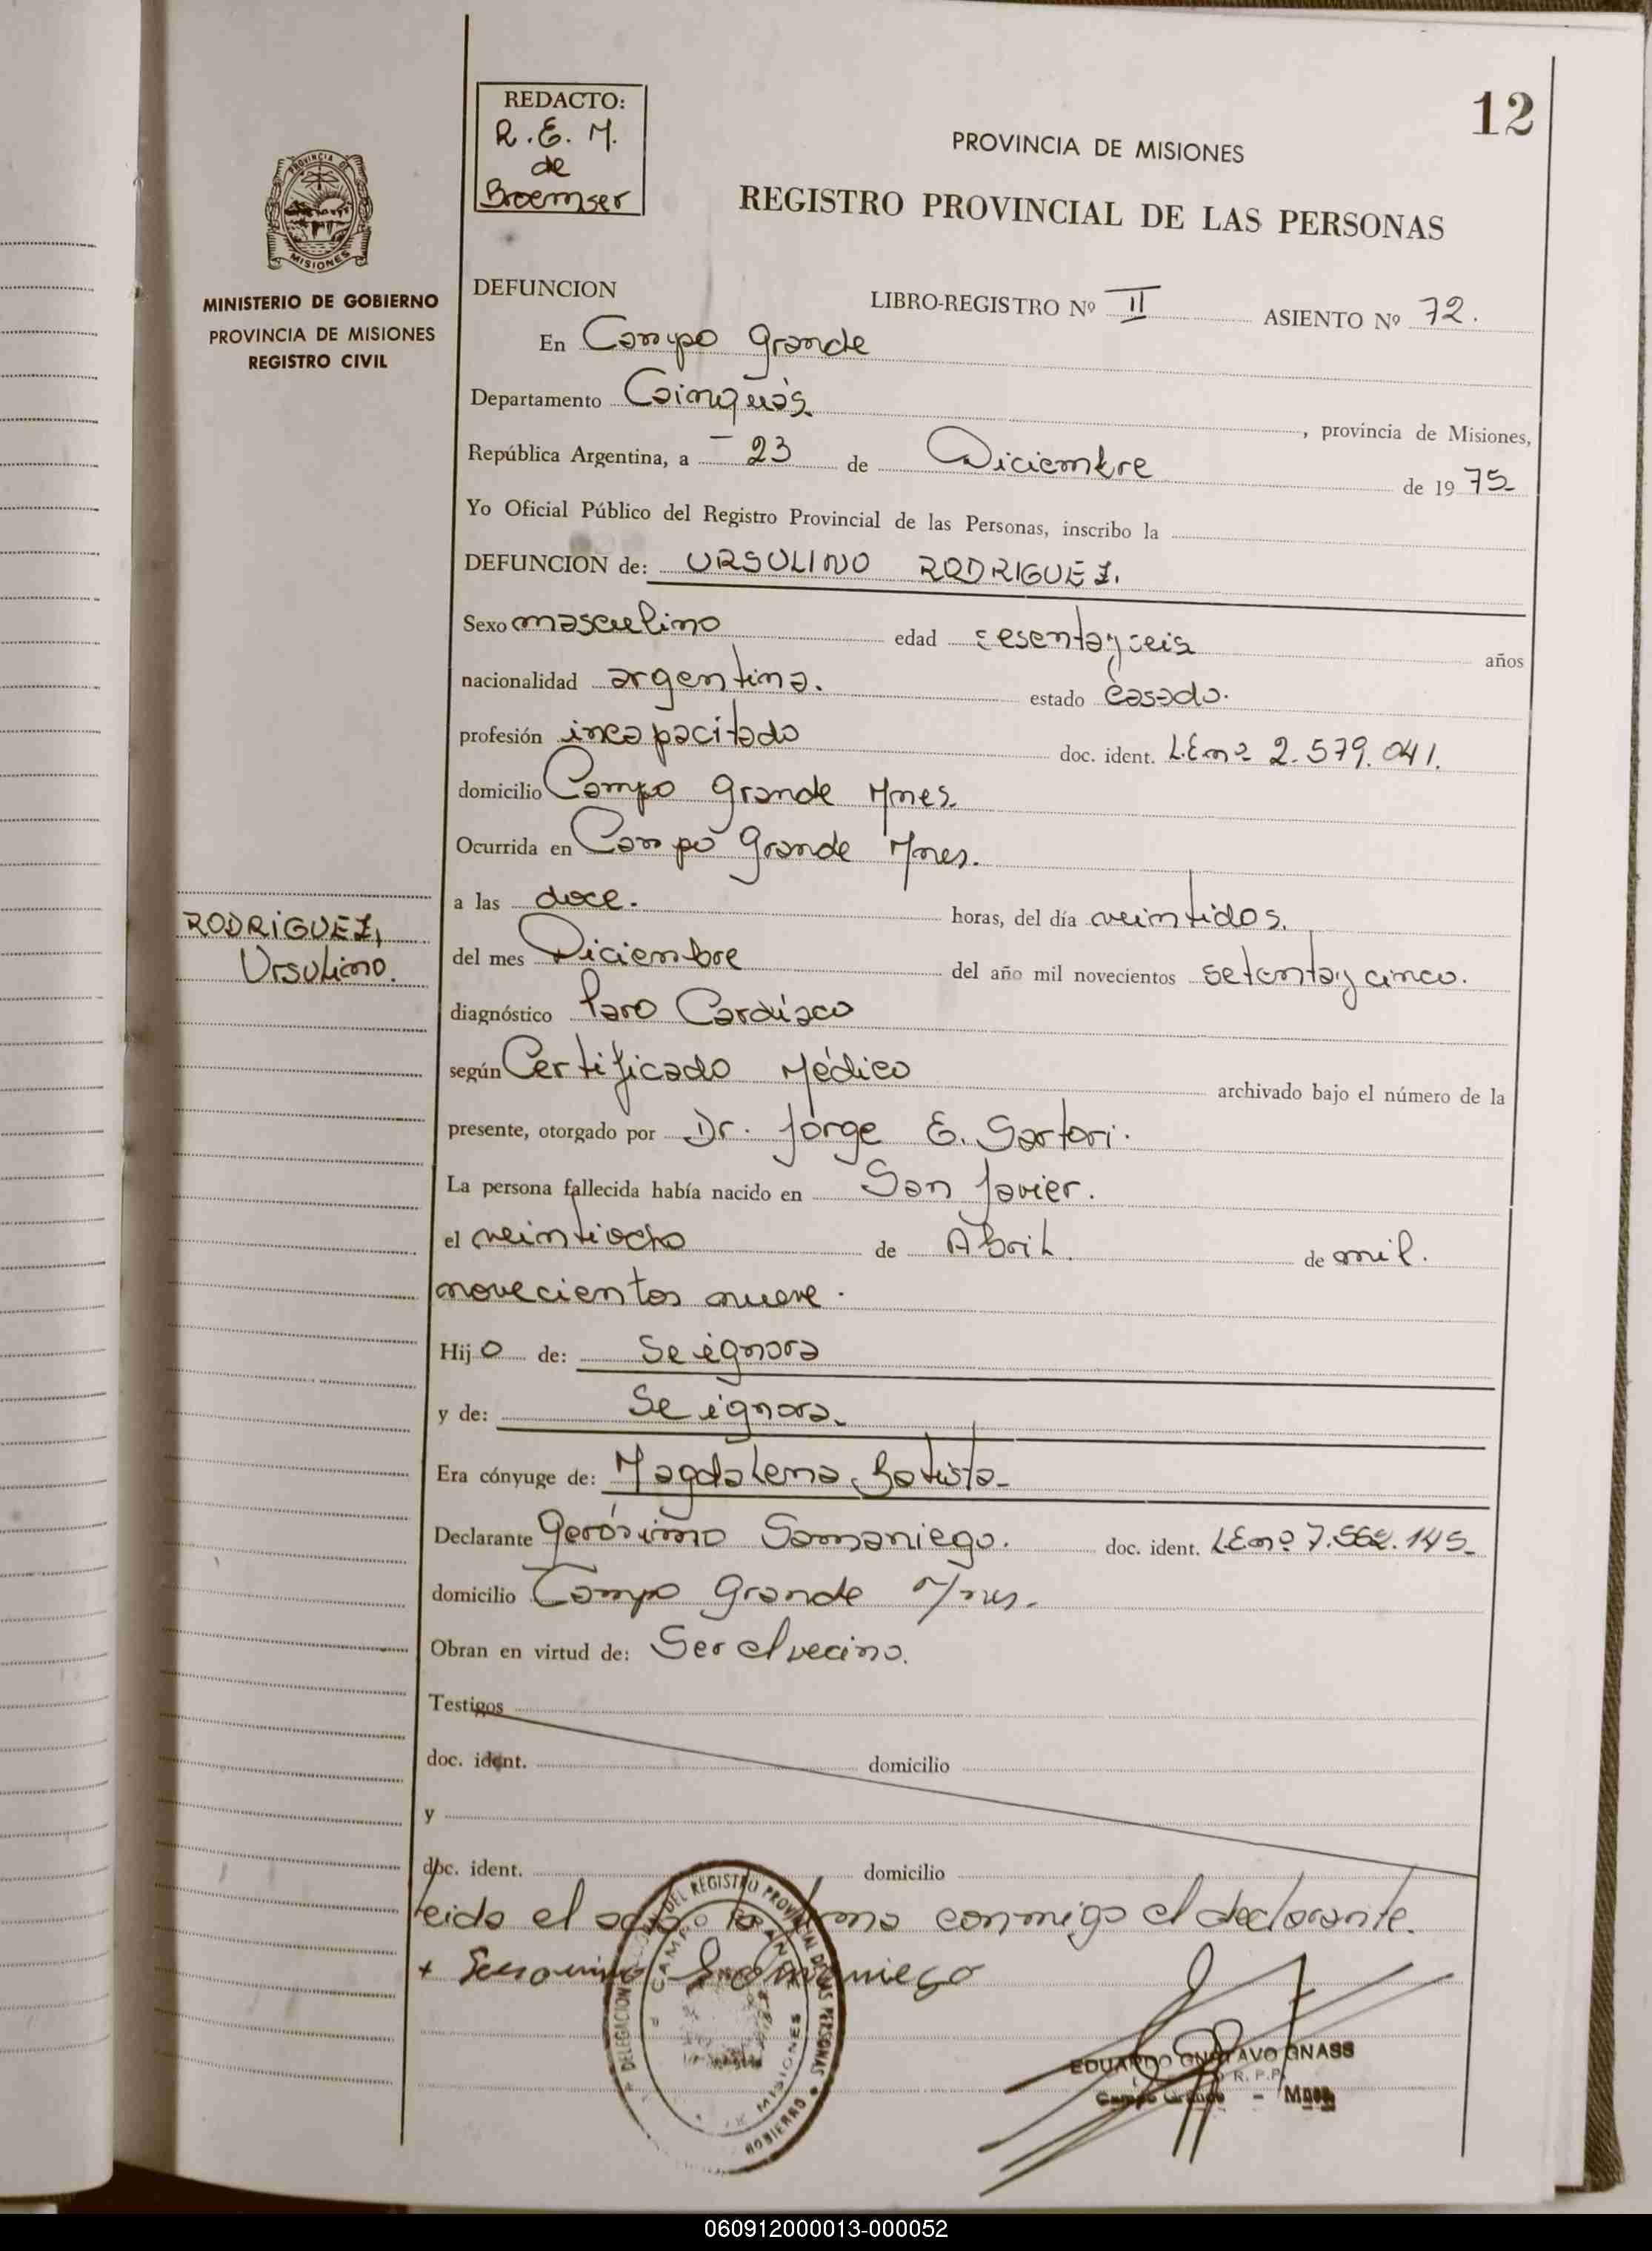 12
REDACTO:
R.E.M.
de
Broemser
PROVINCIA DE MISIONES
REGISTRO PROVINCIAL DE LAS PERSONAS
PROVINCIA DE
MISIONES
MINISTERIO DE GOBIERNO
PROVINCIA DE MISIONES
REGISTRO CIVIL
DEFUNCION LIBRO-REGISTRO Nº II ASIENTO Nº 72.
En Campo Grande
Departamento Cainguás , provincia de Misiones,
República Argentina, a - 23 de Diciembre de 19 75-
Yo Oficial Público del Registro Provincial de las Personas, inscribo la
DEFUNCION de: URSULINO RODRIGUEZ.
Sexo masculino edad sesentayseis años
nacionalidad argentina. estado casado.
profesión incapacitado doc. ident. L.E nº 2.579.041.
domicilio Campo Grande Mnes.
Ocurrida en Campo Grande Mnes.
a las doce. horas, del día veintidos.
RODRIGUEZ,
Ursulino.
del mes Diciembre del año mil novecientos setentay cinco.
diagnóstico Paro Cardíaco
según Certificado Médico archivado bajo el número de la
presente, otorgado por Dr. Jorge E. Sartori.
La persona fallecida había nacido en San Javier.
el veintiocho de Abril de mil.
novecientos nueve.
Hij o de: Se ignora
y de: Se ignora.
Era cónyuge de: Magdalena Batista-
Declarante Gerónimo Samaniego. doc. ident. L.E nº 7.562.145-
domicilio Campo Grande Mnes.
Obran en virtud de: Ser el vecino.
Testigos
doc. ident. domicilio
y
doc. ident. domicilio
leida el acta la firma conmigo el declarante.
+ Geronimo Samaniego
DELEGACION DEL REGISTRO PROVINCIAL DE LAS PERSONAS
CAMPO GRANDE
MISIONES
GOBIERNO
EDUARDO GUSTAVO GNASS
R. P. P.
Campo Grande - Mnes
060912000013-000052